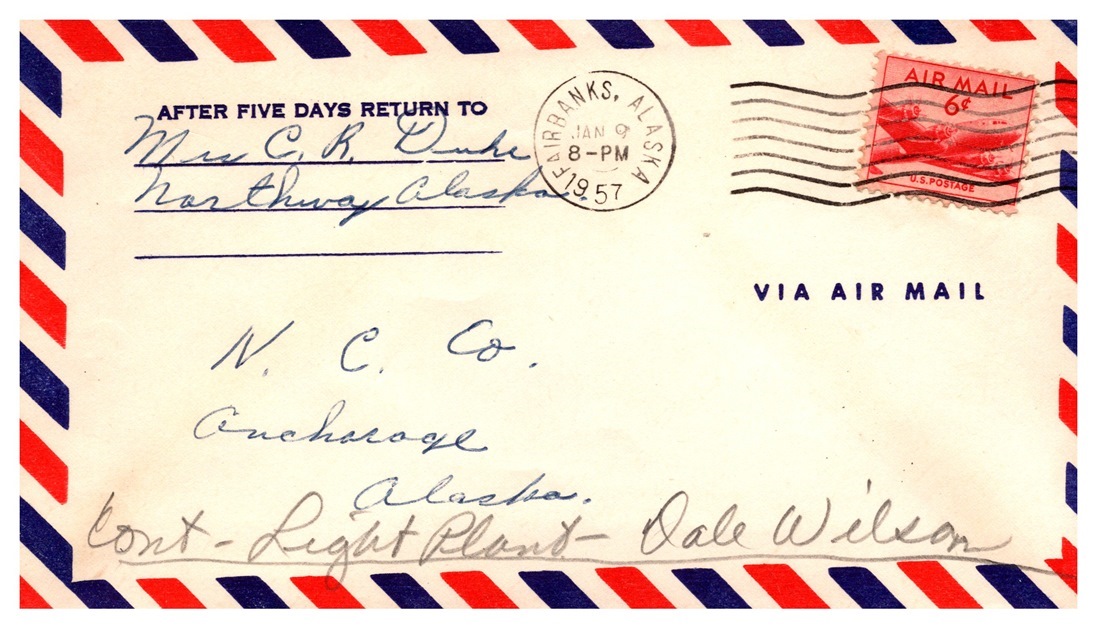 AFTER FIVE DAYS RETURN TO
Mrs C. R. Duke
Northway Alaska.
FAIRBANKS, ALASKA
JAN 9
8-PM
1957
AIR MAIL
6¢
U.S. POSTAGE
VIA AIR MAIL
N. C. Co.
Anchorage
Alaska.
Cont - Light Plant - Dale Wilson